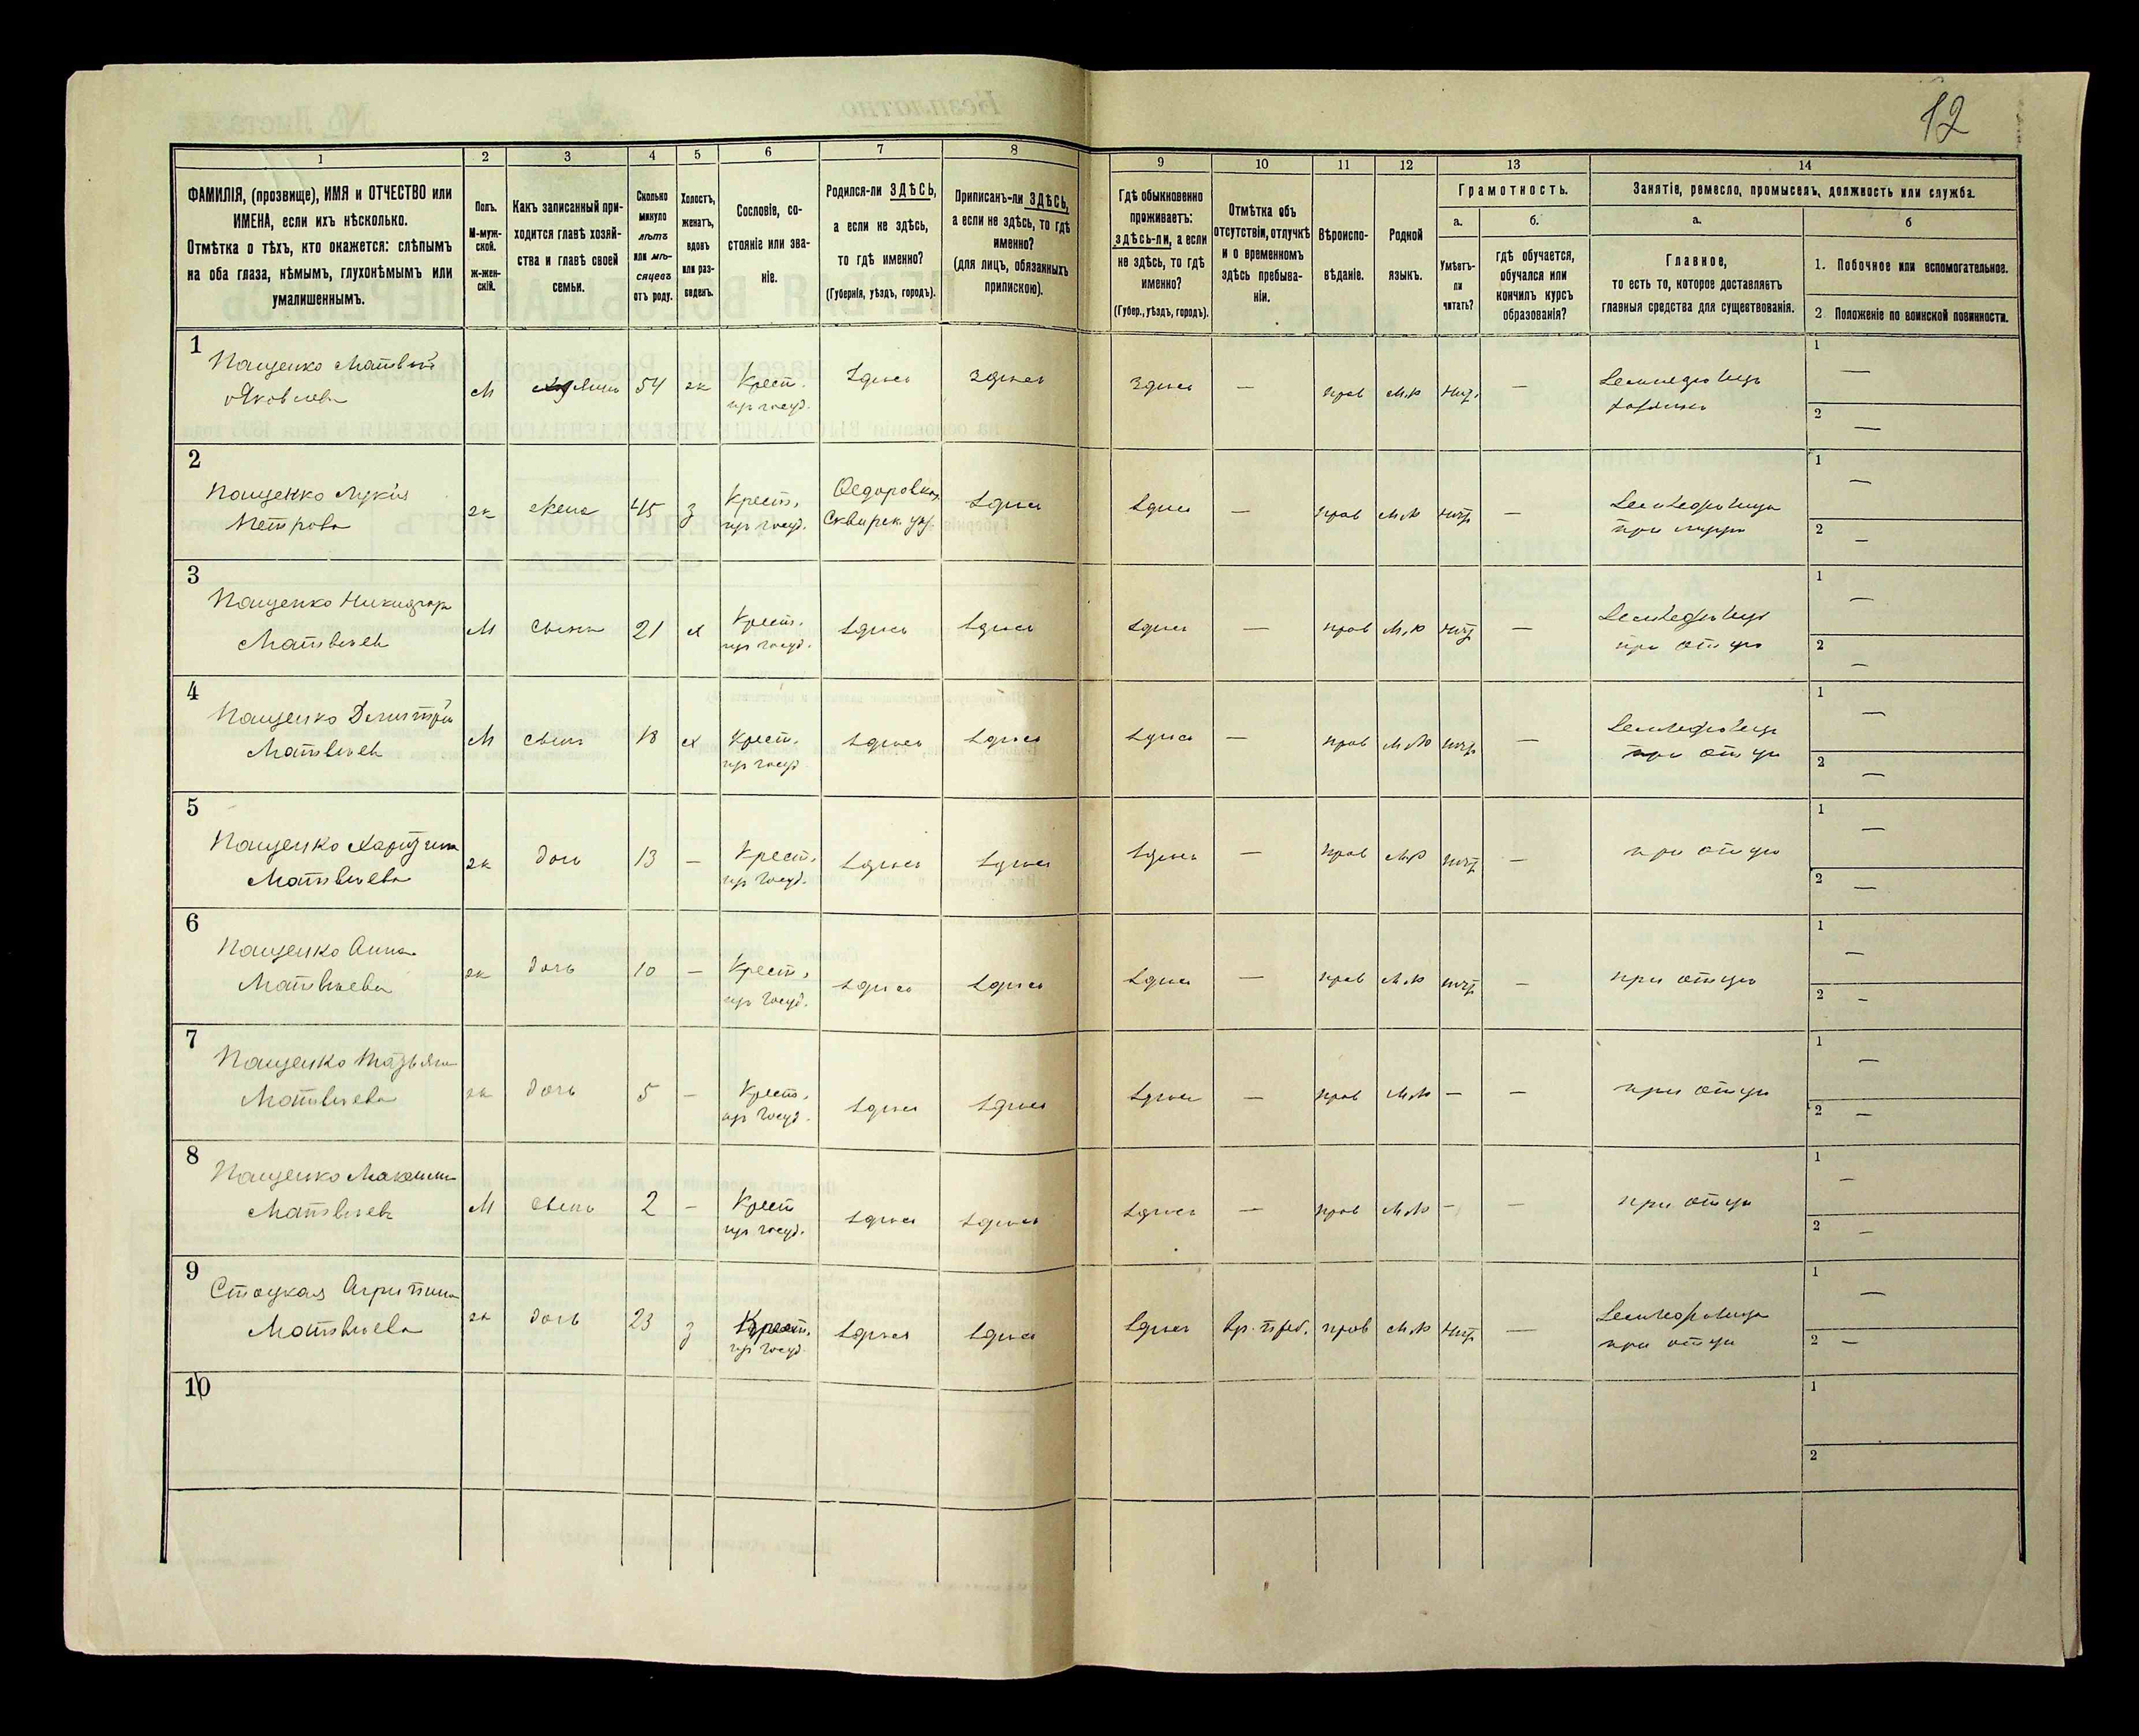 12
1 2 3 4 5 6 7 8 9 10 11 12 13 14
ФАМИЛІЯ, (прозвище), ИМЯ и ОТЧЕСТВО или
ИМЕНА, если ихъ нѣсколько.
Отмѣтка о тѣхъ, кто окажется: слѣпымъ
на оба глаза, нѣмымъ, глухонѣмымъ или
умалишеннымъ.
Полъ.
М-муж-
ской.
ж-жен-
скій.
Какъ записанный при-
ходится главѣ хозяй-
ства и главѣ своей
семьи.
Сколько
минуло
лѣтъ
или мѣ-
сяцевъ
отъ роду.
Холостъ,
женатъ,
вдовъ
или раз-
веденъ.
Сословіе, со-
стояніе или зва-
ніе.
Родился-ли ЗДѢСЬ,
а если не здѣсь,
то гдѣ именно?
(Губернія, уѣздъ, городъ).
Приписанъ-ли ЗДѢСЬ,
а если не здѣсь, то гдѣ
именно?
(для лицъ, обязанныхъ
припискою).
Гдѣ обыкновенно
проживаетъ:
здѣсь-ли, а если
не здѣсь, то гдѣ
именно?
(Губер., уѣздъ, городъ).
Отмѣтка объ
отсутствіи, отлучкѣ
и о временномъ
здѣсь пребыва-
ніи.
Вѣроиспо-
вѣданіе.
Родной
языкъ.
Грамотность.
а.
Умѣетъ-
ли
читать?
б.
гдѣ обучается,
обучался или
кончилъ курсъ
образованія?
Занятіе, ремесло, промыселъ, должность или служба.
а.
Главное,
то есть то, которое доставляетъ
главныя средства для существованія.
б
1. Побочное или вспомогательное.
2 Положеніе по воинской повинности.
1
Пащенко Матвѣй
Яковлевъ
М 54 ж Крест.
из госуд. здѣсь здѣсь здѣсь — прав м.р нѣт. —
1 —
2 —
2
Пащенко Лукія
Петрова
ж жена 45 з Крест.
из госуд. Федоровка,
Сквирск. уѣз. здѣсь здѣсь — прав м.р нѣт
1 —
2 —
3
Пащенко Никифоръ
Матвѣевъ
М сынъ 21 х Крест.
из госуд. здѣсь здѣсь здѣсь — прав м.р нѣт —
при отцѣ
1 —
2 —
4
Пащенко Дмитрій
Матвѣевъ
М сынъ 18 х Крест.
из госуд. здѣсь здѣсь здѣсь — прав м.р нѣт —
при отцѣ
1 —
2 —
5
Пащенко Харитина
Матвѣева
ж дочь 13 — Крест.
из госуд. здѣсь здѣсь здѣсь — прав м.р нѣт — при отцѣ
1 —
2 —
6
Пащенко Анна
Матвѣева
ж дочь 10 — Крест.
из госуд. здѣсь здѣсь здѣсь — прав м.р нѣт — при отцѣ
1 —
2 —
7
Пащенко Татьяна
Матвѣева
ж дочь 5 — Крест.
из госуд. здѣсь здѣсь здѣсь — прав м.р — — при отцѣ
1 —
2 —
8
Пащенко Максимъ
Матвѣевъ
М сынъ 2 — Крест
из госуд. здѣсь здѣсь здѣсь — прав м.р — — при отцѣ
1 —
2 —
9
Стоцкая Агрипина
Матвѣева
ж дочь 23 з Крест.
из госуд. здѣсь здѣсь здѣсь вр. преб. прав м.р нѣт —
при отцѣ
1 —
2 —
10
1
2